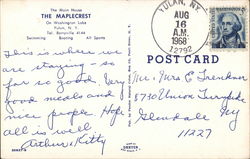 The Main House
THE MAPLECREST
On Washington Lake
Yulan, N. Y.
Tel. Barryville 4144
Swimming Boating All Sports
YULAN, N.Y.
AUG
16
A.M.
1968
12792
POST CARD
This is where we
are staying - so
far so good. Very
good meals and
nice people. Hope
all is well
Arthur & Kitty
Mr. & Mrs E
8730 Union Turnpike
Glendale NY
11227
DEXTER